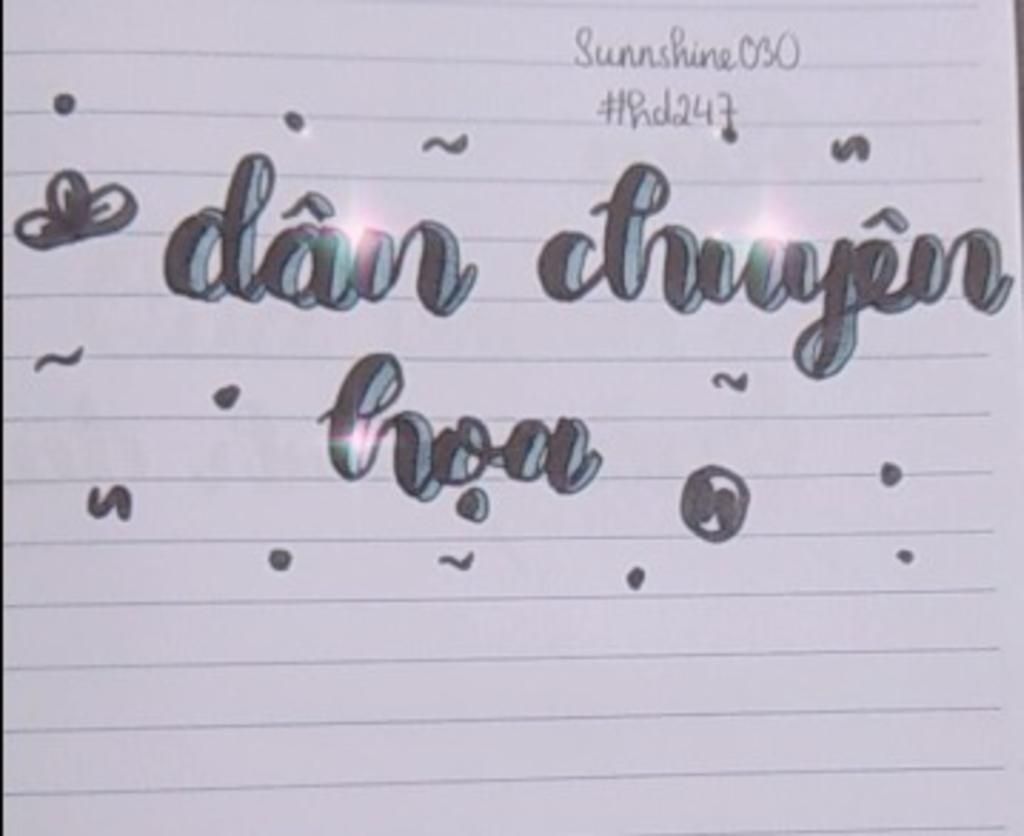 Sunnshine030
#hd247
dân chuyên
họa